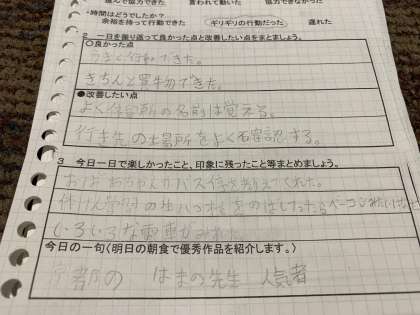 進んで協力できた 言われて動いた 協力できなかった
・時間はどうでしたか？
余裕を持って行動できた ギリギリの行動だった 遅れた
2 一日を振り返って良かった点と改善したい点をまとめましょう。
○良かった点
うまく行動できた。
きちんと買物できた。
●改善したい点
よく停留所の名前は覚える。
行き先の場所をよく確認する。
3 今日一日で楽しかったこと、印象に残ったこと等まとめましょう。
おばあちゃんがバス停を教えてくれた。
いろいろな電車がみれた。
今日の一句（明日の朝食で優秀作品を紹介します。）
はまの先生 人気者